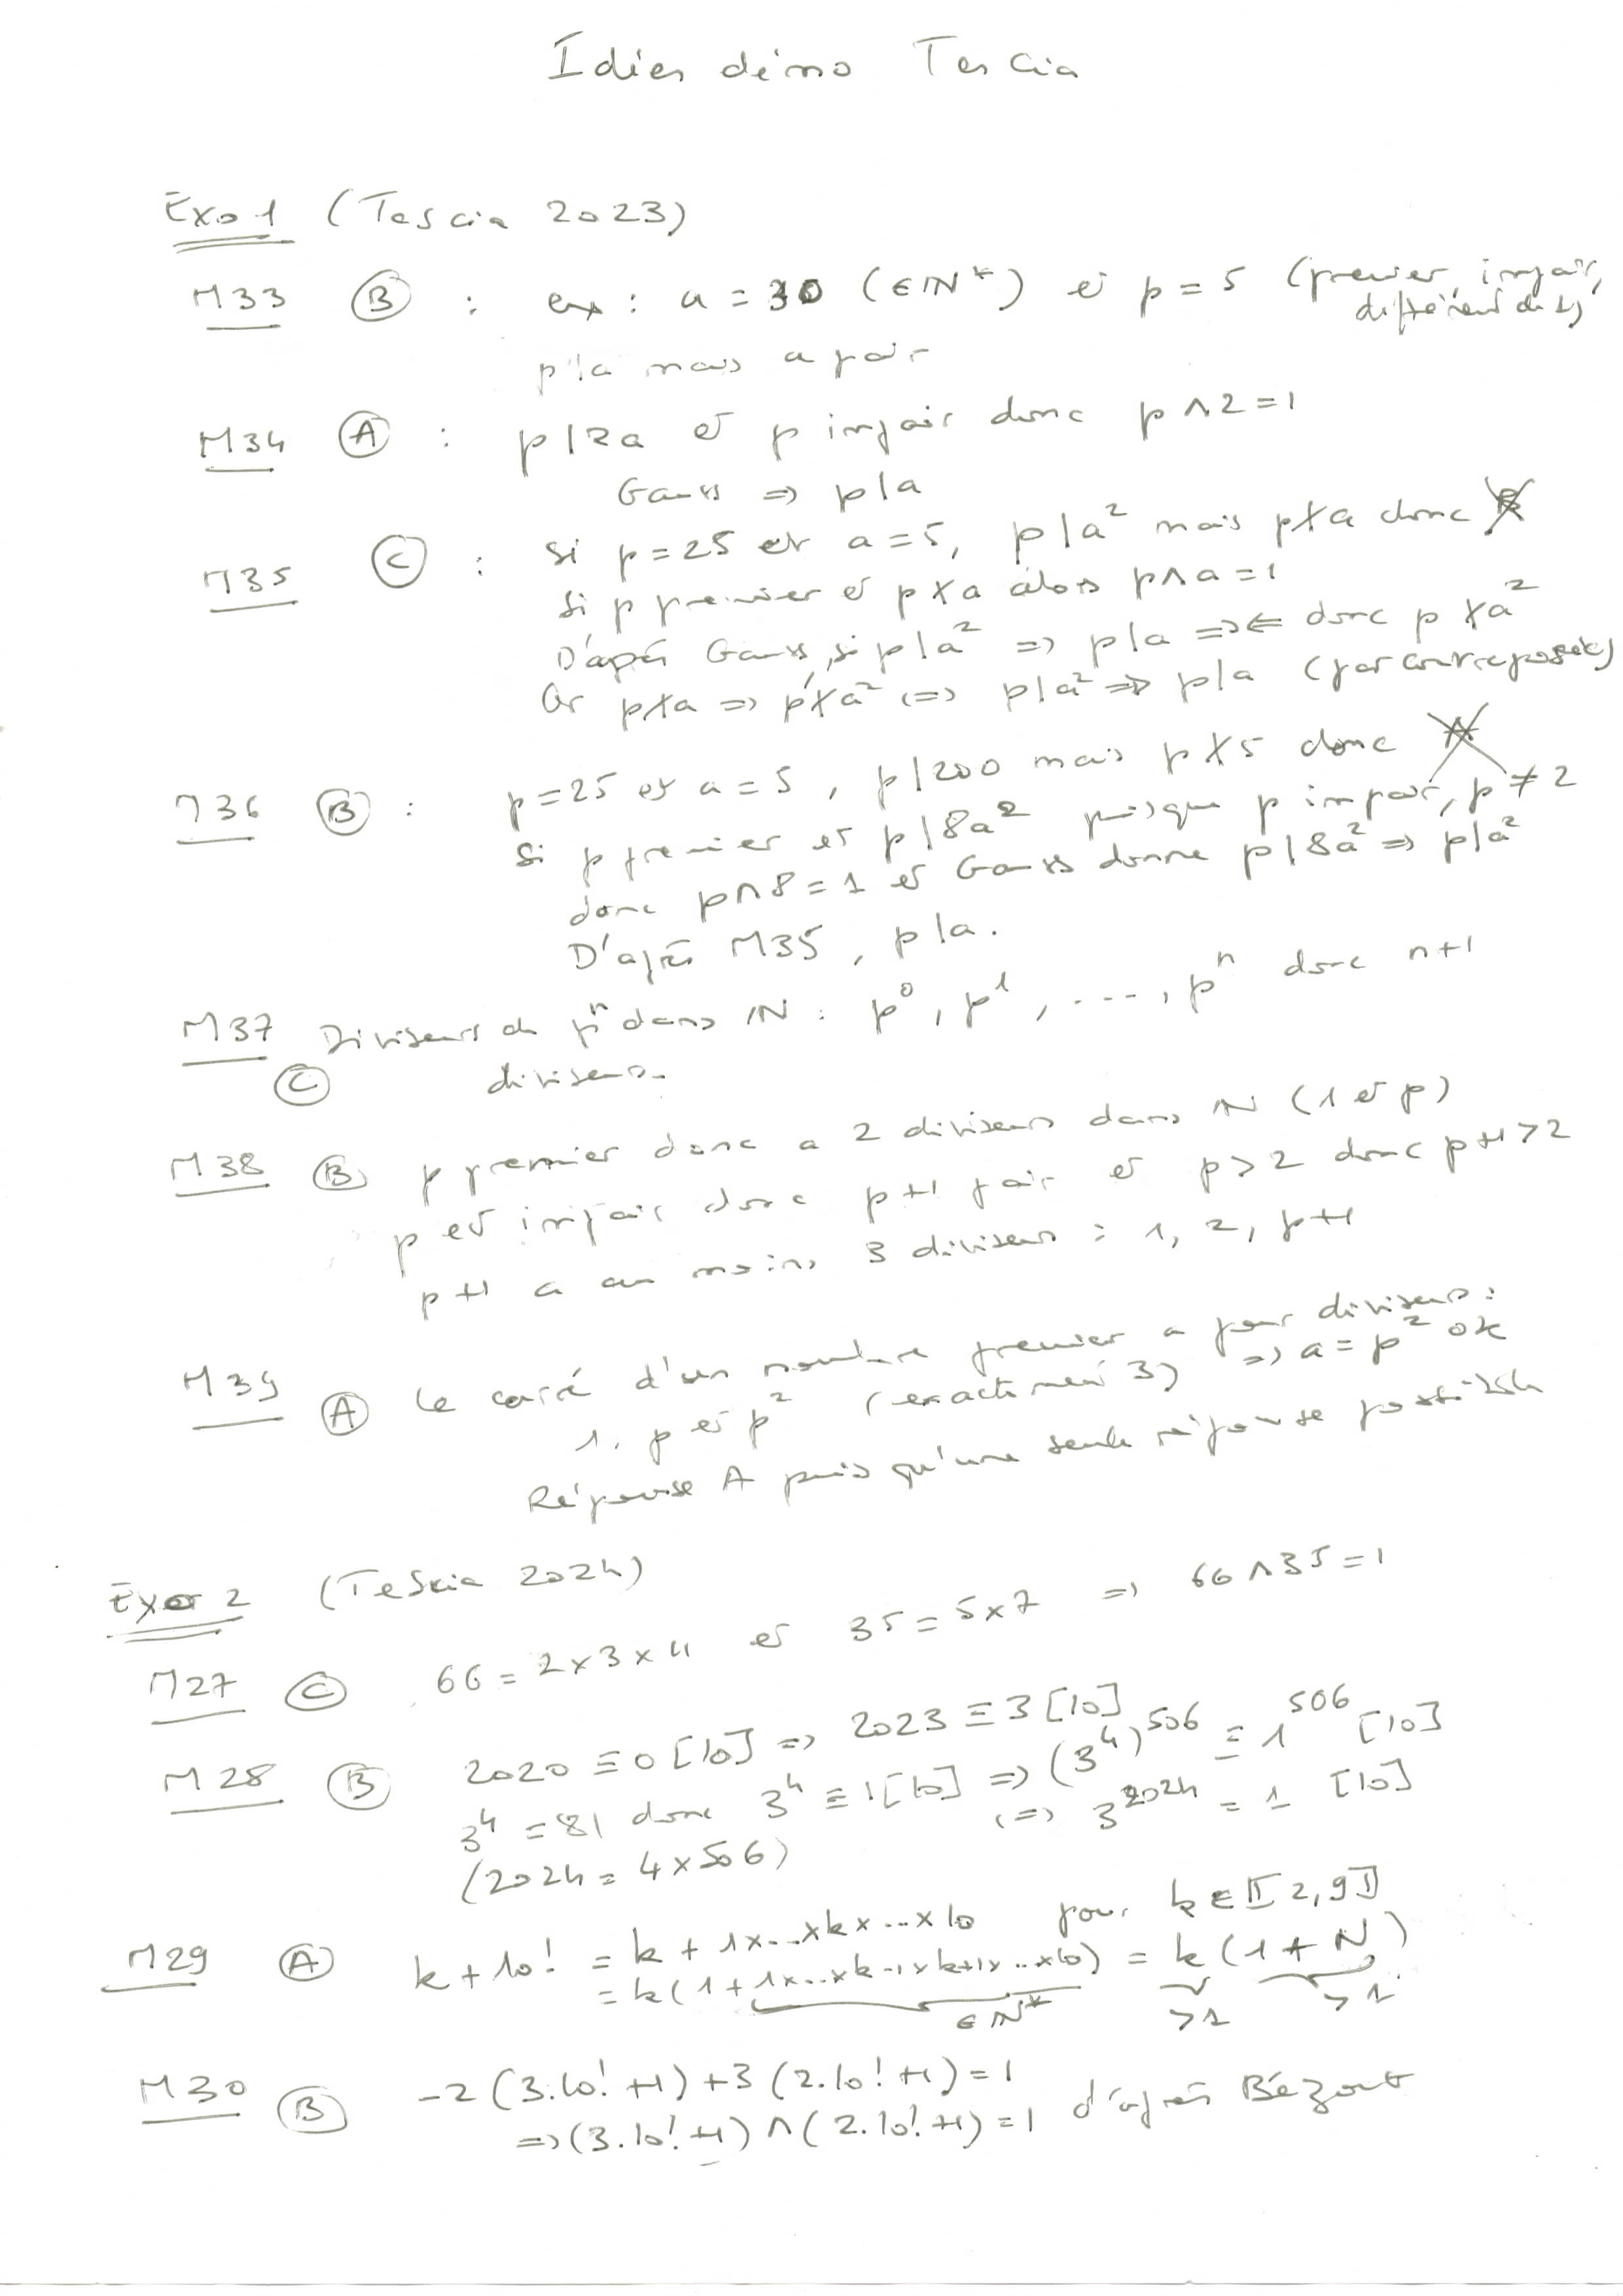 Idées démo Tescia
Exo 1 (Tescia 2023)
M33 (B) : ex : a = 30 (∈ℕ*) et p = 5 (premier, impair, différent de 2)
p|a mais a pair
M34 (A) : p|2a et p impair donc p∧2=1
Gauss => p|a
M35 (C) : Si p=25 et a=5, p|a² mais p∤a donc B
Si p premier et p∤a alors p∧a=1
D'après Gauss, si p|a² => p|a =>⇐ donc p∤a²
Or p∤a => p∤a² <=> p|a² => p|a (par contraposée)
M36 (B) : p=25 et a=5, p|200 mais p∤5 donc A
Si p premier et p|8a² puisque p impair, p≠2
donc p∧8=1 et Gauss donne p|8a² => p|a²
D'après M35, p|a.
M37 Diviseurs de pⁿ dans ℕ : p⁰, p¹, ..., pⁿ donc n+1
(C) diviseurs.
M38 (B) p premier donc a 2 diviseurs dans ℕ (1 et p)
p est impair donc p+1 pair et p>2 donc p+1>2
p+1 a au moins 3 diviseurs : 1, 2, p+1
M39 (A) Le carré d'un nombre premier a pour diviseurs :
1, p et p² (exactement 3) => a=p² ok
Réponse A puisqu'une seule réponse possible
Exo 2 (Tescia 2024)
M27 (C) 66=2×3×11 et 35=5×7 => 66∧35=1
M28 (B) 2020≡0[10] => 2023≡3[10]
3⁴=81 donc 3⁴≡1[10] => (3⁴)⁵⁰⁶≡1⁵⁰⁶[10]
(2024=4×506) <=> 3²⁰²⁴=1 [10]
M29 (A) k+10! = k+1×...×k×...×10 pour k∈⟦2,9⟧
=k(1+1×..×k-1×k+1×..×10) = k(1+N)
∈ℕ* >1 >1
M30 (B) -2(3.10!+1)+3(2.10!+1)=1
=>(3.10!+1)∧(2.10!+1)=1 d'après Bézout